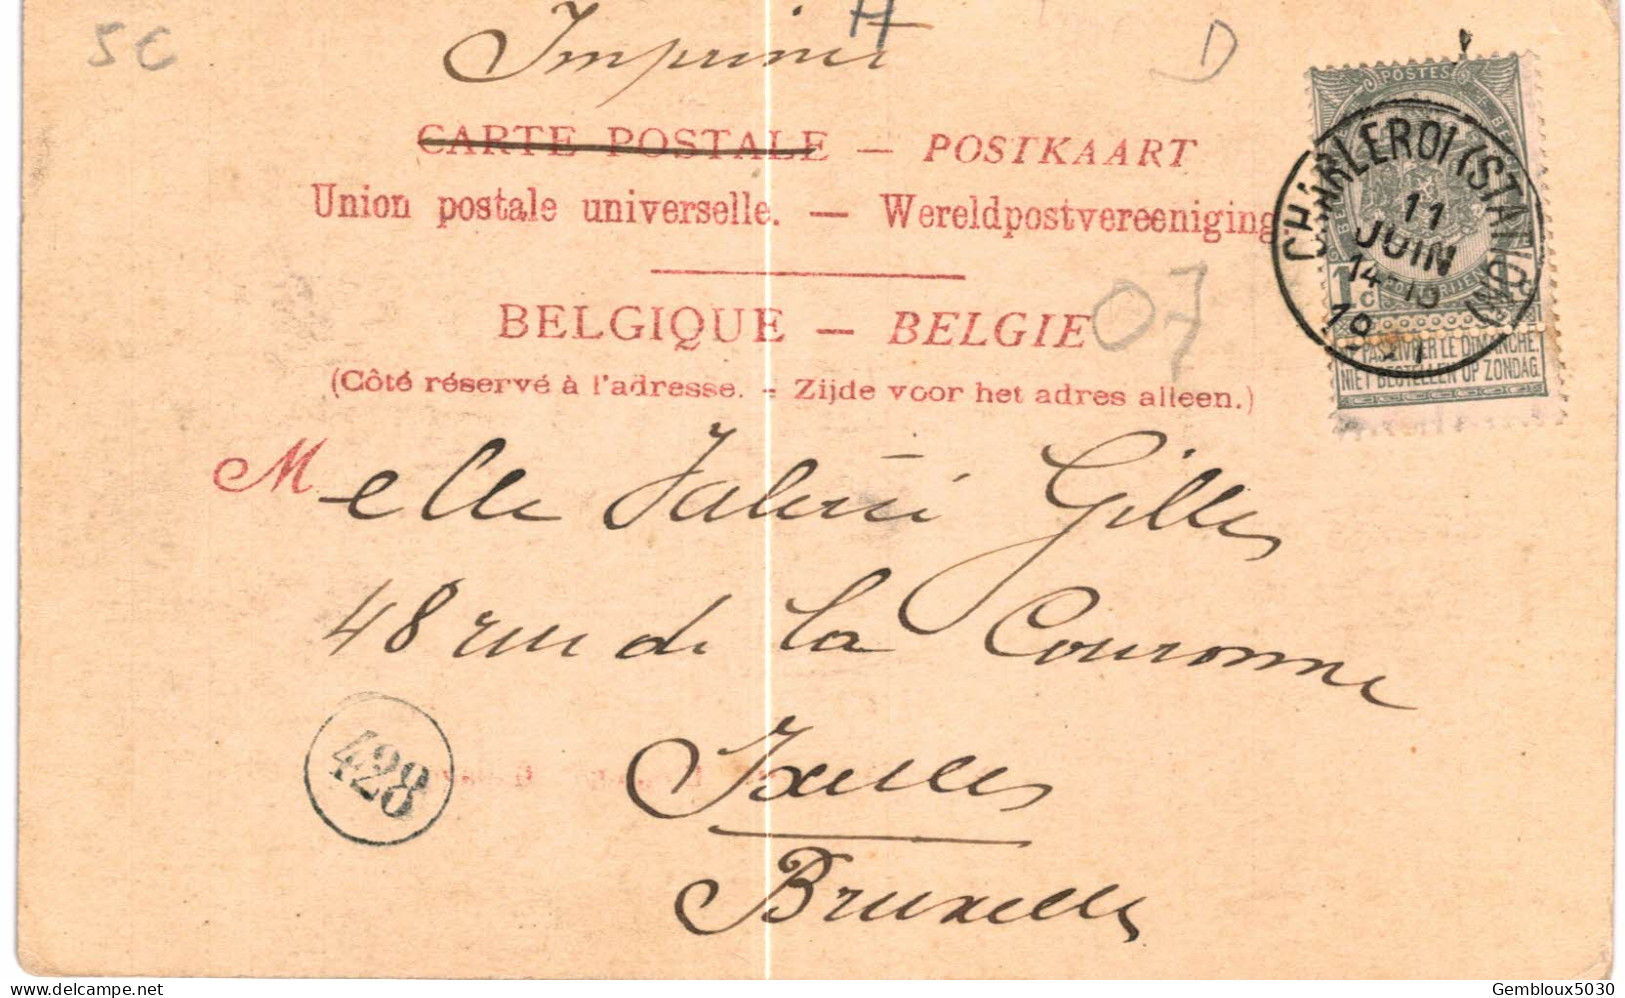 5C
H
D
Imprimé
CARTE POSTALE — POSTKAART
Union postale universelle. — Wereldpostvereeniging.
BELGIQUE — BELGIE
07
(Côté réservé à l'adresse. - Zijde voor het adres alleen.)
POSTES
CHARLEROI (STATION)
11
JUIN
14-15
19
1 C
PAS LIVRER LE DIMANCHE.
NIET BESTELLEN OP ZONDAG.
Melle Valérie Gilles
48 rue de la Couronne
428
Ixelles
Bruxelles
Gembloux5030